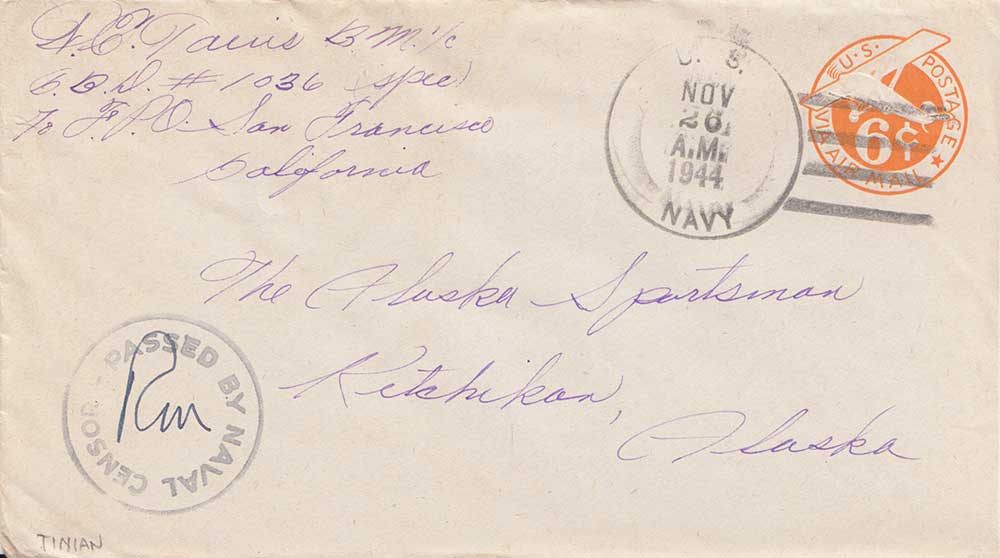 W. E. Tacus B.M. 1/c
C.B.D. # 1036 (spec)
% F.P.O. San Francisco
California
U. S.
NOV
26
A.M.
1944
NAVY
U.S. POSTAGE
6¢
VIA AIR MAIL
The Alaska Sportsman
Kitchikan,
Alaska
PASSED BY NAVAL CENSOR
TINIAN